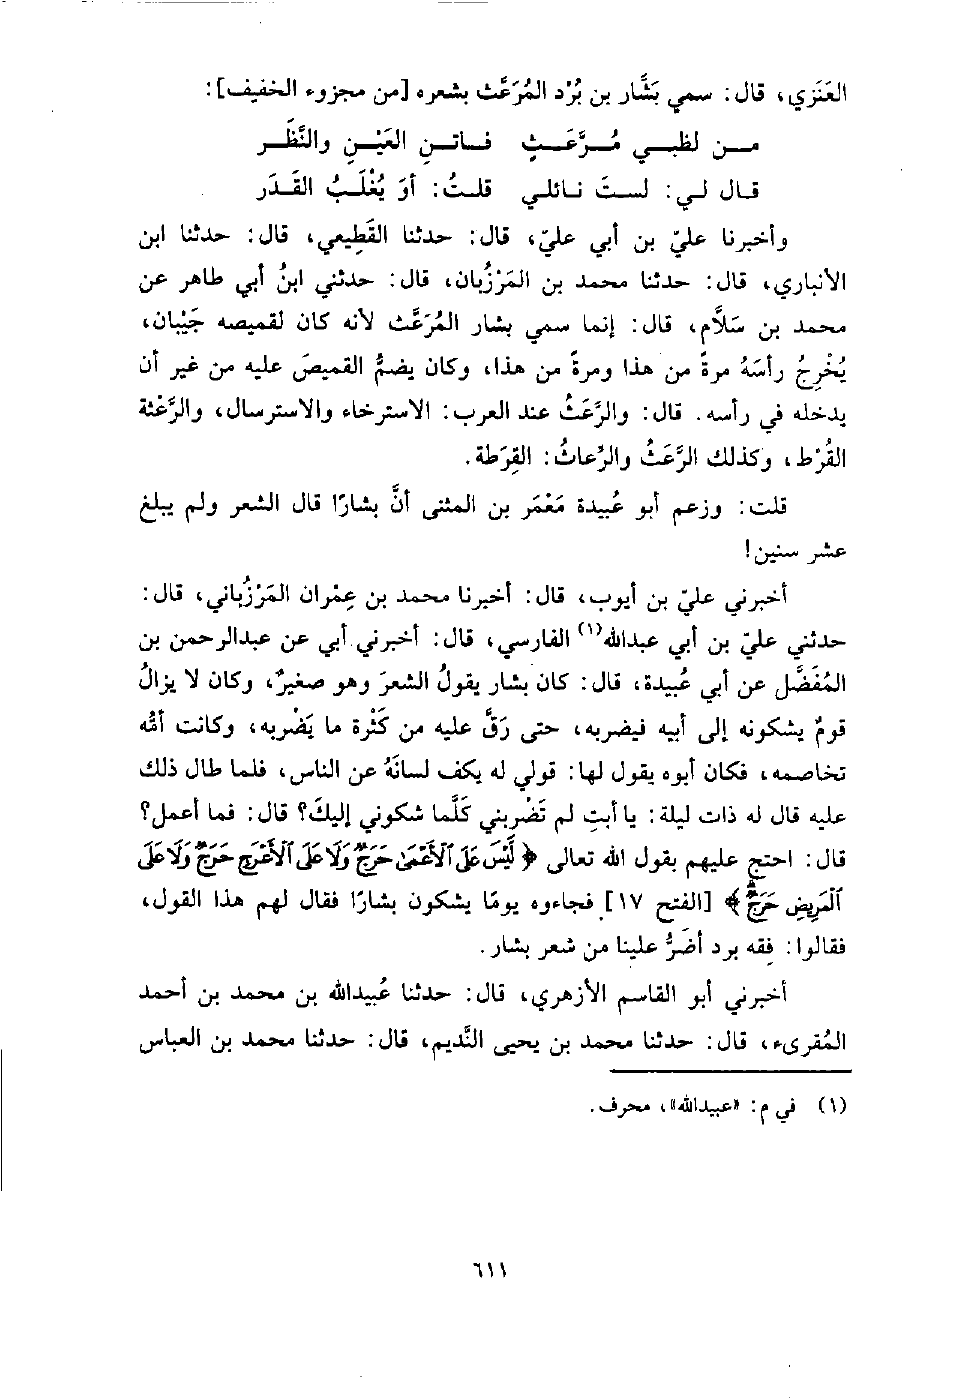 العَنَزي، قال: سمي بَشَّار بن بُرْد المُرَعَّث بشعره [من مجزوء الخفيف]:
مــن لظبــي مُــرَعَّــثٍ فــاتــنِ العَيْــنِ والنَّظَــر
قــال لــي: لســتَ نــائلــي قلــتُ: أوَ يُغْلَــبُ القَــدَر
وأخبرنا عليّ بن أبي عليّ، قال: حدثنا القَطِيعي، قال: حدثنا ابن
الأنباري، قال: حدثنا محمد بن المَرْزُبان، قال: حدثني ابنُ أبي طاهر عن
محمد بن سَلَّام، قال: إنما سمي بشار المُرَعَّث لأنه كان لقميصه جَيْبان،
يُخْرِجُ رأسَهُ مرةً من هذا ومرةً من هذا، وكان يضمُّ القميصَ عليه من غير أن
يدخله في رأسه. قال: والرَّعَثُ عند العرب: الاسترخاء والاسترسال، والرَّعْثة
القُرْط، وكذلك الرَّعَثُ والرِّعاثُ: القِرَطة.
قلت: وزعم أبو عُبيدة مَعْمَر بن المثنى أنَّ بشارًا قال الشعر ولم يبلغ
عشر سنين!
أخبرني عليّ بن أيوب، قال: أخبرنا محمد بن عِمْران المَرْزُباني، قال:
حدثني عليّ بن أبي عبدالله(١) الفارسي، قال: أخبرني أبي عن عبدالرحمن بن
المُفَضَّل عن أبي عُبيدة، قال: كان بشار يقولُ الشعرَ وهو صغيرٌ، وكان لا يزالُ
قومٌ يشكونه إلى أبيه فيضربه، حتى رَقَّ عليه من كَثْرة ما يَضْربه، وكانت أمُّه
تخاصمه، فكان أبوه يقول لها: قولي له يكف لسانَهُ عن الناس، فلما طال ذلك
عليه قال له ذات ليلة: يا أبتِ لم تَضْربني كَلَّما شكوني إليكَ؟ قال: فما أعمل؟
قال: احتج عليهم بقول الله تعالى ﴿لَّيْسَ عَلَى ٱلْأَعْمَىٰ حَرَجٌ وَلَا عَلَى ٱلْأَعْرَجِ حَرَجٌ وَلَا عَلَى
ٱلْمَرِيضِ حَرَجٌ﴾ [الفتح ١٧] فجاءوه يومًا يشكون بشارًا فقال لهم هذا القول،
فقالوا: فِقه برد أضَرُّ علينا من شعر بشار.
أخبرني أبو القاسم الأزهري، قال: حدثنا عُبيدالله بن محمد بن أحمد
المُقرىء، قال: حدثنا محمد بن يحيى النَّديم، قال: حدثنا محمد بن العباس
(١) في م: «عبيدالله»، محرف.
٦١١